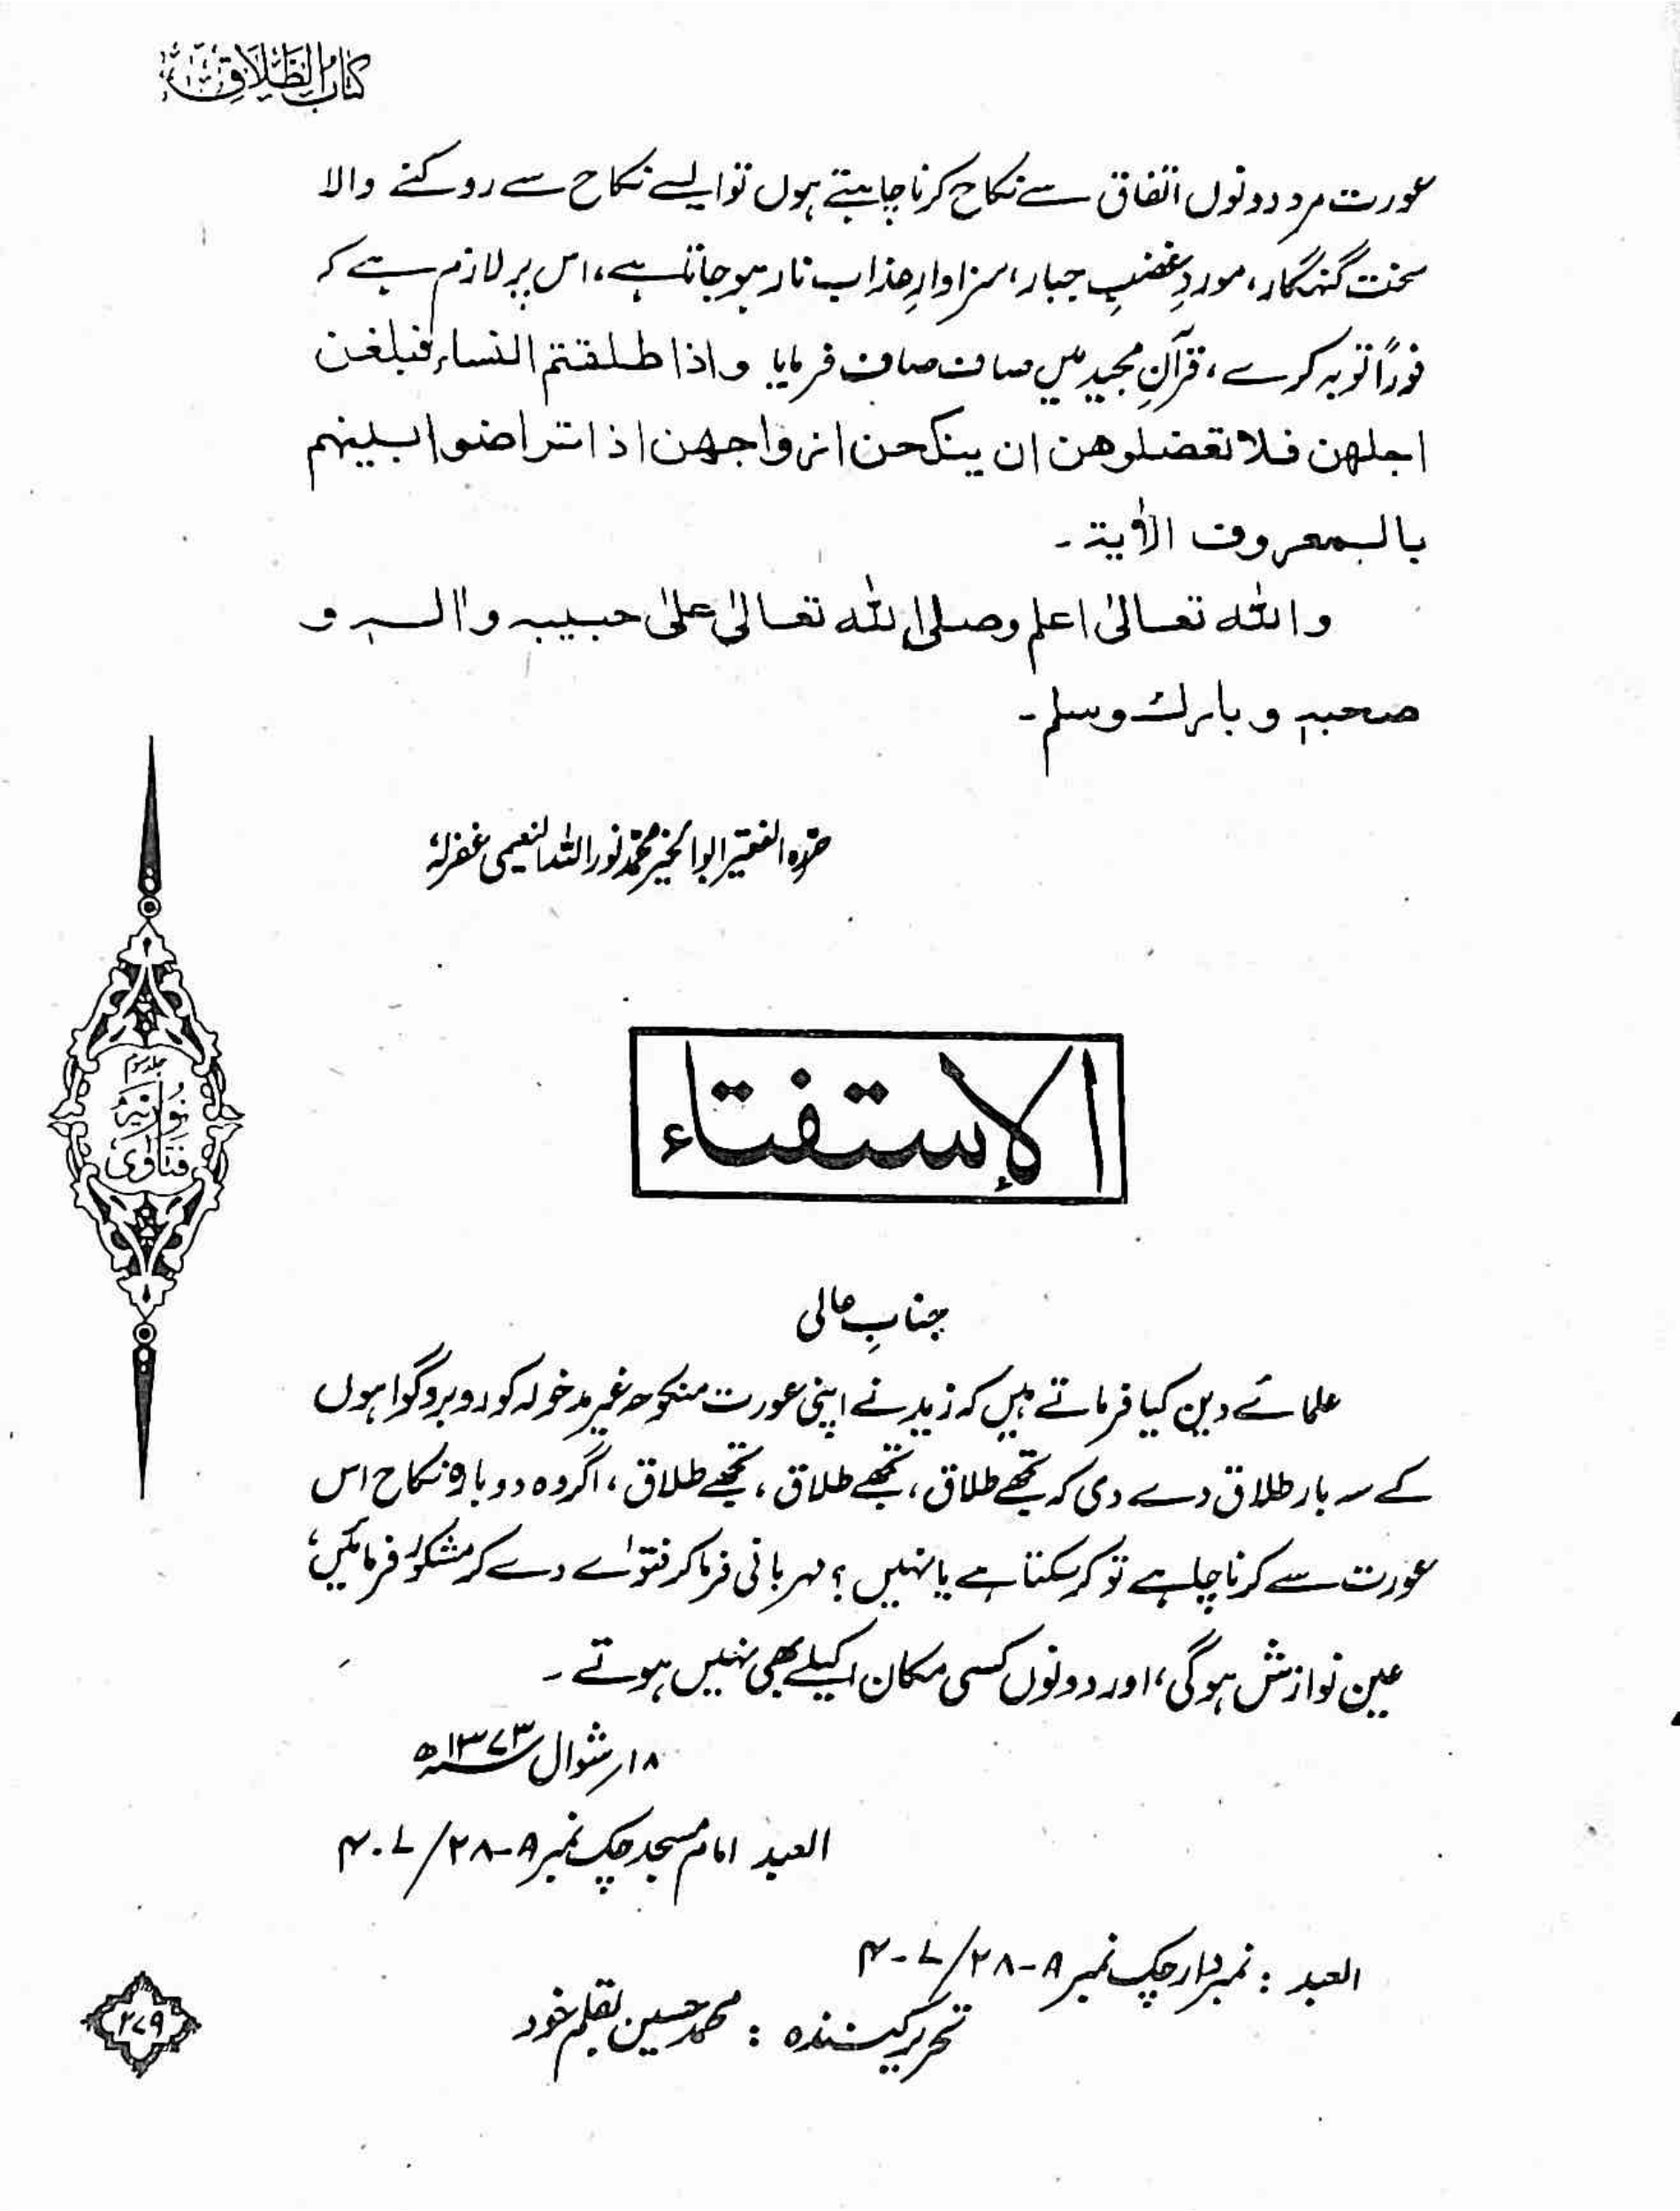 کتاب الطلاق
عورت مرد دونوں اتفاق سے نکاح کرنا چاہتے ہوں تو ایسے نکاح سے روکنے والا
سخت گنہگار، موردِ غضبِ جبار، سزاوارِ عذاب نار ہو جاتا ہے، اس پر لازم ہے کہ
فوراً توبہ کرے، قرآنِ مجید میں صاف صاف فرمایا واذا طلقتم النساء فبلغن
اجلهن فلا تعضلوهن ان ینکحن ازواجهن اذا تراضوا بینهم
بالمعروف الأیۃ۔
واللہ تعالیٰ اعلم وصلی اللہ تعالیٰ علیٰ حبیبہ واٰلہٖ و
صحبہٖ وبارك وسلم۔
حررہ الفقیر ابوالخیر محمد نور اللہ النعیمی غفرلہٗ
الإستفتاء
جلد سوم
نوریہ
فتاوی
جنابِ عالی
علمائے دین کیا فرماتے ہیں کہ زید نے اپنی عورت منکوحہ غیر مدخولہ کو روبرو گواہوں
کے سہ بار طلاق دے دی کہ تجھے طلاق، تجھے طلاق، تجھے طلاق، اگر وہ دوبارہ نکاح اس
عورت سے کرنا چاہے تو کر سکتا ہے یا نہیں؟ مہربانی فرما کر فتوٰے دے کر مشکور فرمائیں،
عین نوازش ہوگی، اور دونوں کسی مکان اکیلے بھی نہیں ہوتے۔
۱۸؍ شوال ۱۳۷۳ھ
العبد امام مسجد چک نمبر ۸-۲۸/۷-۴
العبد : نمبردار چک نمبر ۸-۲۸/۷-۴
تحریر کنندہ : محمد حسین بقلم خود
۲۷۹